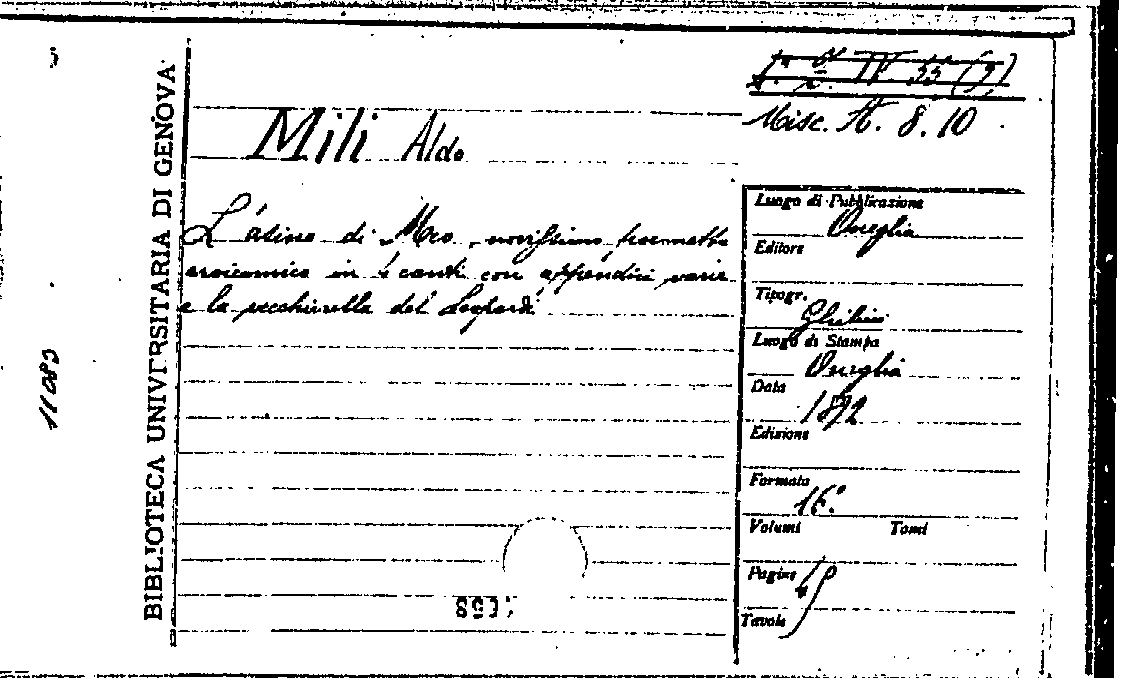 Misc. A. 8. 10
Mili Aldo
L'asino di Meo, novissimo poemetto
eroicomico in 4 canti con appendici varie
e la vecchierella del Leopardi
BIBLIOTECA UNIVERSITARIA DI GENOVA
11083
Luogo di Pubblicazione
Oneglia
Editore
Tipogr.
Ghilini
Luogo di Stampa
Oneglia
Data
1892
Edizione
Formato
16.°
Volumi Tomi
Pagine
Tavole